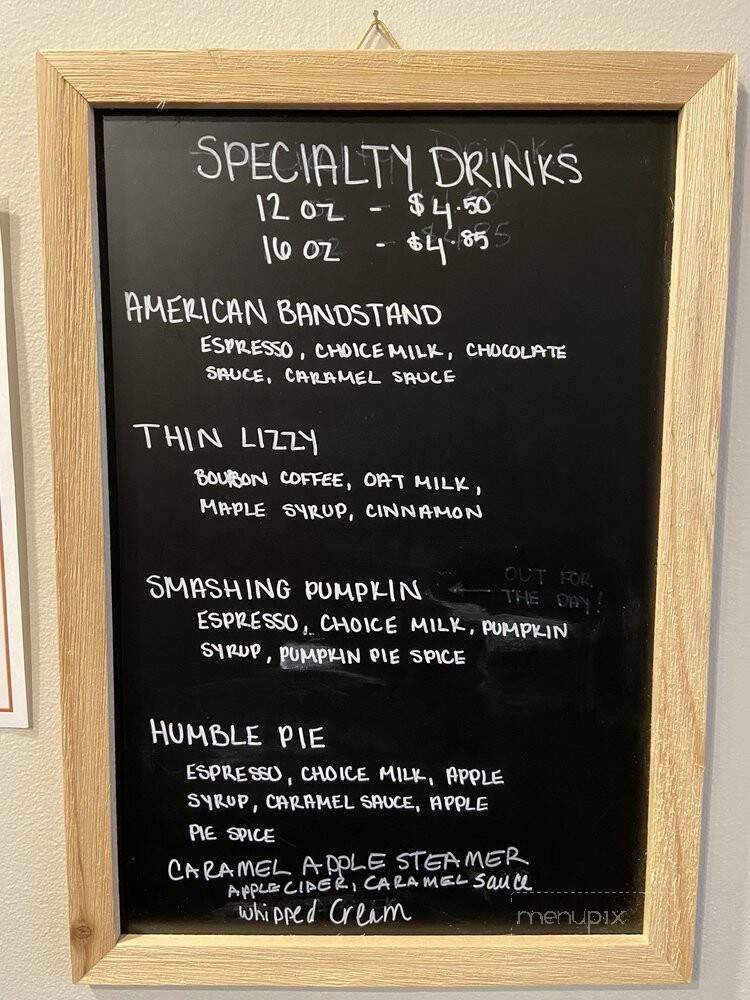 SPECIALTY DRINKS
12 OZ - $4.50
16 OZ - $4.85
AMERICAN BANDSTAND
ESPRESSO, CHOICE MILK, CHOCOLATE
SAUCE, CARAMEL SAUCE
THIN LIZZY
BOURBON COFFEE, OAT MILK,
MAPLE SYRUP, CINNAMON
SMASHING PUMPKIN ← OUT FOR
THE DAY!
ESPRESSO, CHOICE MILK, PUMPKIN
SYRUP, PUMPKIN PIE SPICE
HUMBLE PIE
ESPRESSO, CHOICE MILK, APPLE
SYRUP, CARAMEL SAUCE, APPLE
PIE SPICE
CARAMEL APPLE STEAMER
APPLE CIDER, CARAMEL Sauce
Whipped Cream
menupix